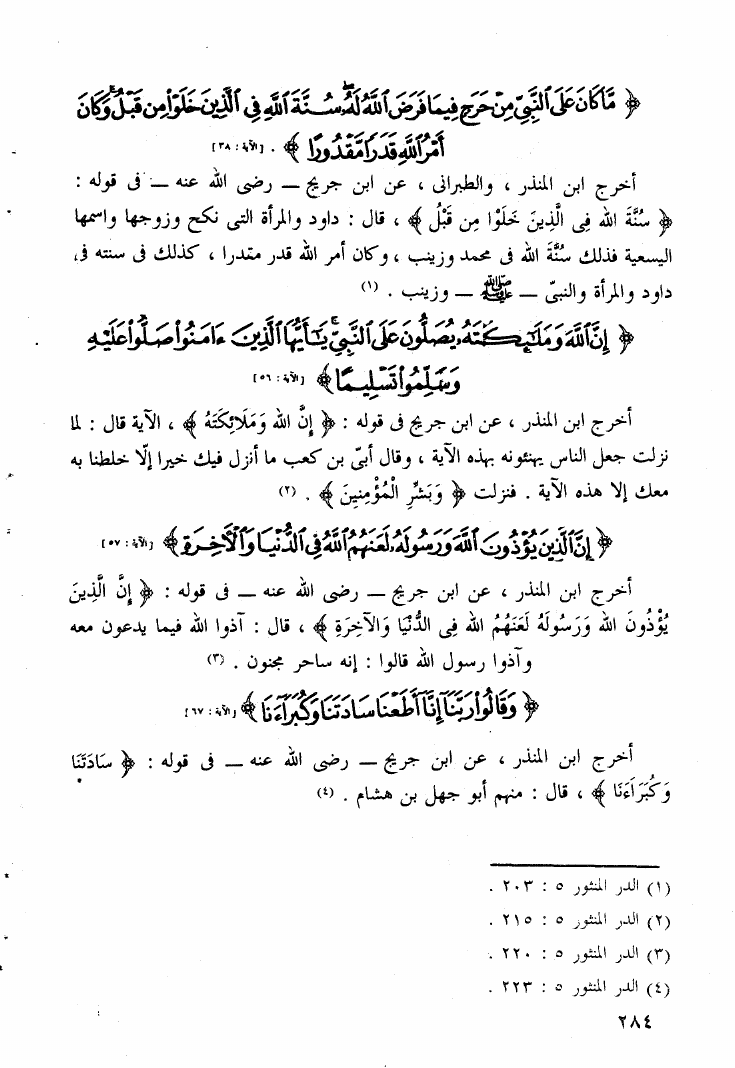 ﴿ مَّا كَانَ عَلَى ٱلنَّبِىِّ مِنْ حَرَجٍ فِيمَا فَرَضَ ٱللَّهُ لَهُۥ سُنَّةَ ٱللَّهِ فِى ٱلَّذِينَ خَلَوْا۟ مِن قَبْلُ وَكَانَ
أَمْرُ ٱللَّهِ قَدَرًا مَّقْدُورًا ﴾ . [الآية : ٣٨]
أخرج ابن المنذر ، والطبرانى ، عن ابن جريج ــ رضى الله عنه ــ فى قوله :
﴿ سُنَّةَ الله فِى الَّذِينَ خَلَوْا مِن قَبْلُ ﴾ ، قال : داود والمرأة التى نكح وزوجها واسمها
اليسعية فذلك سُنَّةَ الله فى محمد وزينب ، وكان أمر الله قدر متدرا ، كذلك فى سنته فى
داود والمرأة والنبىّ ــ ﷺ ــ وزينب . (١)
﴿ إِنَّ ٱللَّهَ وَمَلَٰٓئِكَتَهُۥ يُصَلُّونَ عَلَى ٱلنَّبِىِّ يَٰٓأَيُّهَا ٱلَّذِينَ ءَامَنُوا۟ صَلُّوا۟ عَلَيْهِ
وَسَلِّمُوا۟ تَسْلِيمًا ﴾ [الآية : ٥٦]
أخرج ابن المنذر ، عن ابن جريج فى قوله : ﴿ إِنَّ الله وَمَلَائِكَتَهُ ﴾ ، الآية قال : لما
نزلت جعل الناس يهنئونه بهذه الآية ، وقال أبىّ بن كعب ما أنزل فيك خيرا إلّا خلطنا به
معك إلا هذه الآية . فنزلت ﴿ وَبَشِّرِ الْمُؤْمِنِينَ ﴾ . (٢)
﴿ إِنَّ ٱلَّذِينَ يُؤْذُونَ ٱللَّهَ وَرَسُولَهُۥ لَعَنَهُمُ ٱللَّهُ فِى ٱلدُّنْيَا وَٱلْأَخِرَةِ ﴾ [الآية : ٥٧]
أخرج ابن المنذر ، عن ابن جريج ــ رضى الله عنه ــ فى قوله : ﴿ إِنَّ الَّذِينَ
يُؤْذُونَ الله وَرَسُولَهُ لَعَنَهُمُ الله فِى الدُّنْيَا وَالآخِرَةِ ﴾ ، قال : آذوا الله فيما يدعون معه
وآذوا رسول الله قالوا : إنه ساحر مجنون . (٣)
﴿ وَقَالُوا۟ رَبَّنَآ إِنَّآ أَطَعْنَا سَادَتَنَا وَكُبَرَآءَنَا ﴾ [الآية : ٦٧]
أخرج ابن المنذر ، عن ابن جريج ــ رضى الله عنه ــ فى قوله : ﴿ سَادَتَنَا
وَكُبَرَاءَنَا ﴾ ، قال : منهم أبو جهل بن هشام . (٤)
(١) الدر المنثور ٥ : ٢٠٣ .
(٢) الدر المنثور ٥ : ٢١٥ .
(٣) الدر المنثور ٥ : ٢٢٠ .
(٤) الدر المنثور ٥ : ٢٢٣ .
٢٨٤